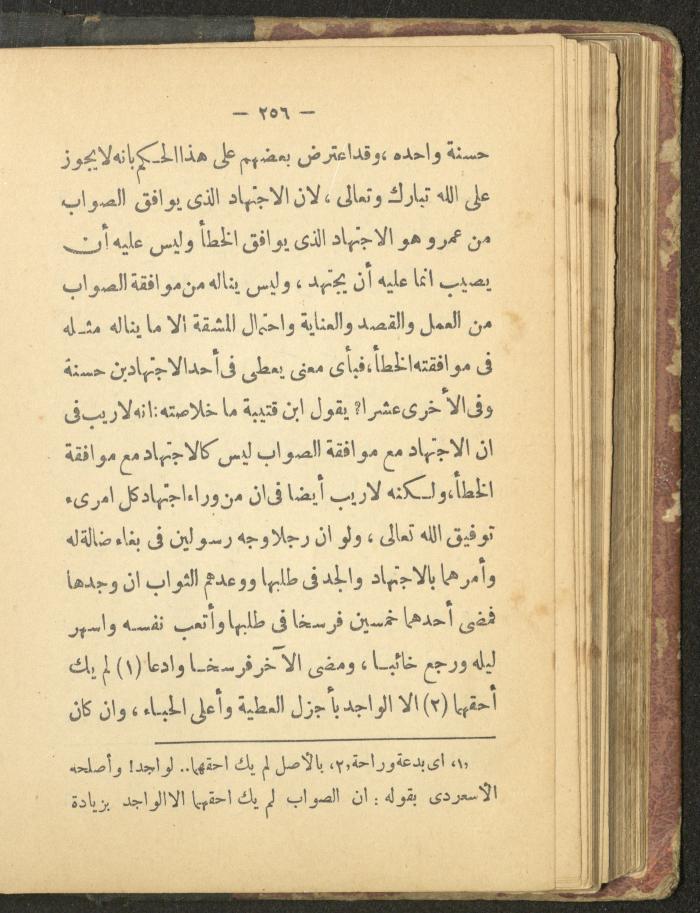 — ٢٥٦ —
حسنة واحده ،وقداعترض بعضهم على هذا الحـكم بانه لايجوز
على الله تبارك وتعالى ، لان الاجتهاد الذى يوافق الصواب
من عمرو هو الاجتهاد الذى يوافق الخطأ وليس عليه أن
يصيب انما عليه أن يجتهد ، وليس يناله من موافقة الصواب
من العمل والقصد والعناية واحتمال المشقة الا ما يناله مثـله
فى موافقته الخطأ، فبأى معنى يعطى فى أحد الاجتهادين حسنة
وفى الأخرى عشرا؟ يقول ابن قتيبة ما خلاصته : انه لاريب فى
ان الاجتهاد مع موافقة الصواب ليس كالاجتهاد مع موافقة
الخطأ،ولـكنه لاريب أيضا فى ان من وراء اجتهاد كل امرىء
توفيق الله تعالى ، ولو ان رجلا وجه رسولين فى بغاء ضالة له
وأمرهما بالاجتهاد والجد فى طلبها ووعدهم الثواب ان وجدها
فمضى أحدهما خمسين فرسخا فى طلبها وأتعب نفسـه واسهر
ليله ورجع خائبـا ، ومضى الآخر فرسخـا وادعا (١) لم يك
أحقهما (٢) الا الواجد بأجزل العطية وأعلى الحباء ، وان كان
«١» اى بدعة وراحة «٢» بالأصل لم يك احقهما.. لواجد! وأصلحه
الأسعردى بقوله : ان الصواب لم يك احقهما الا الواجد بزيادة